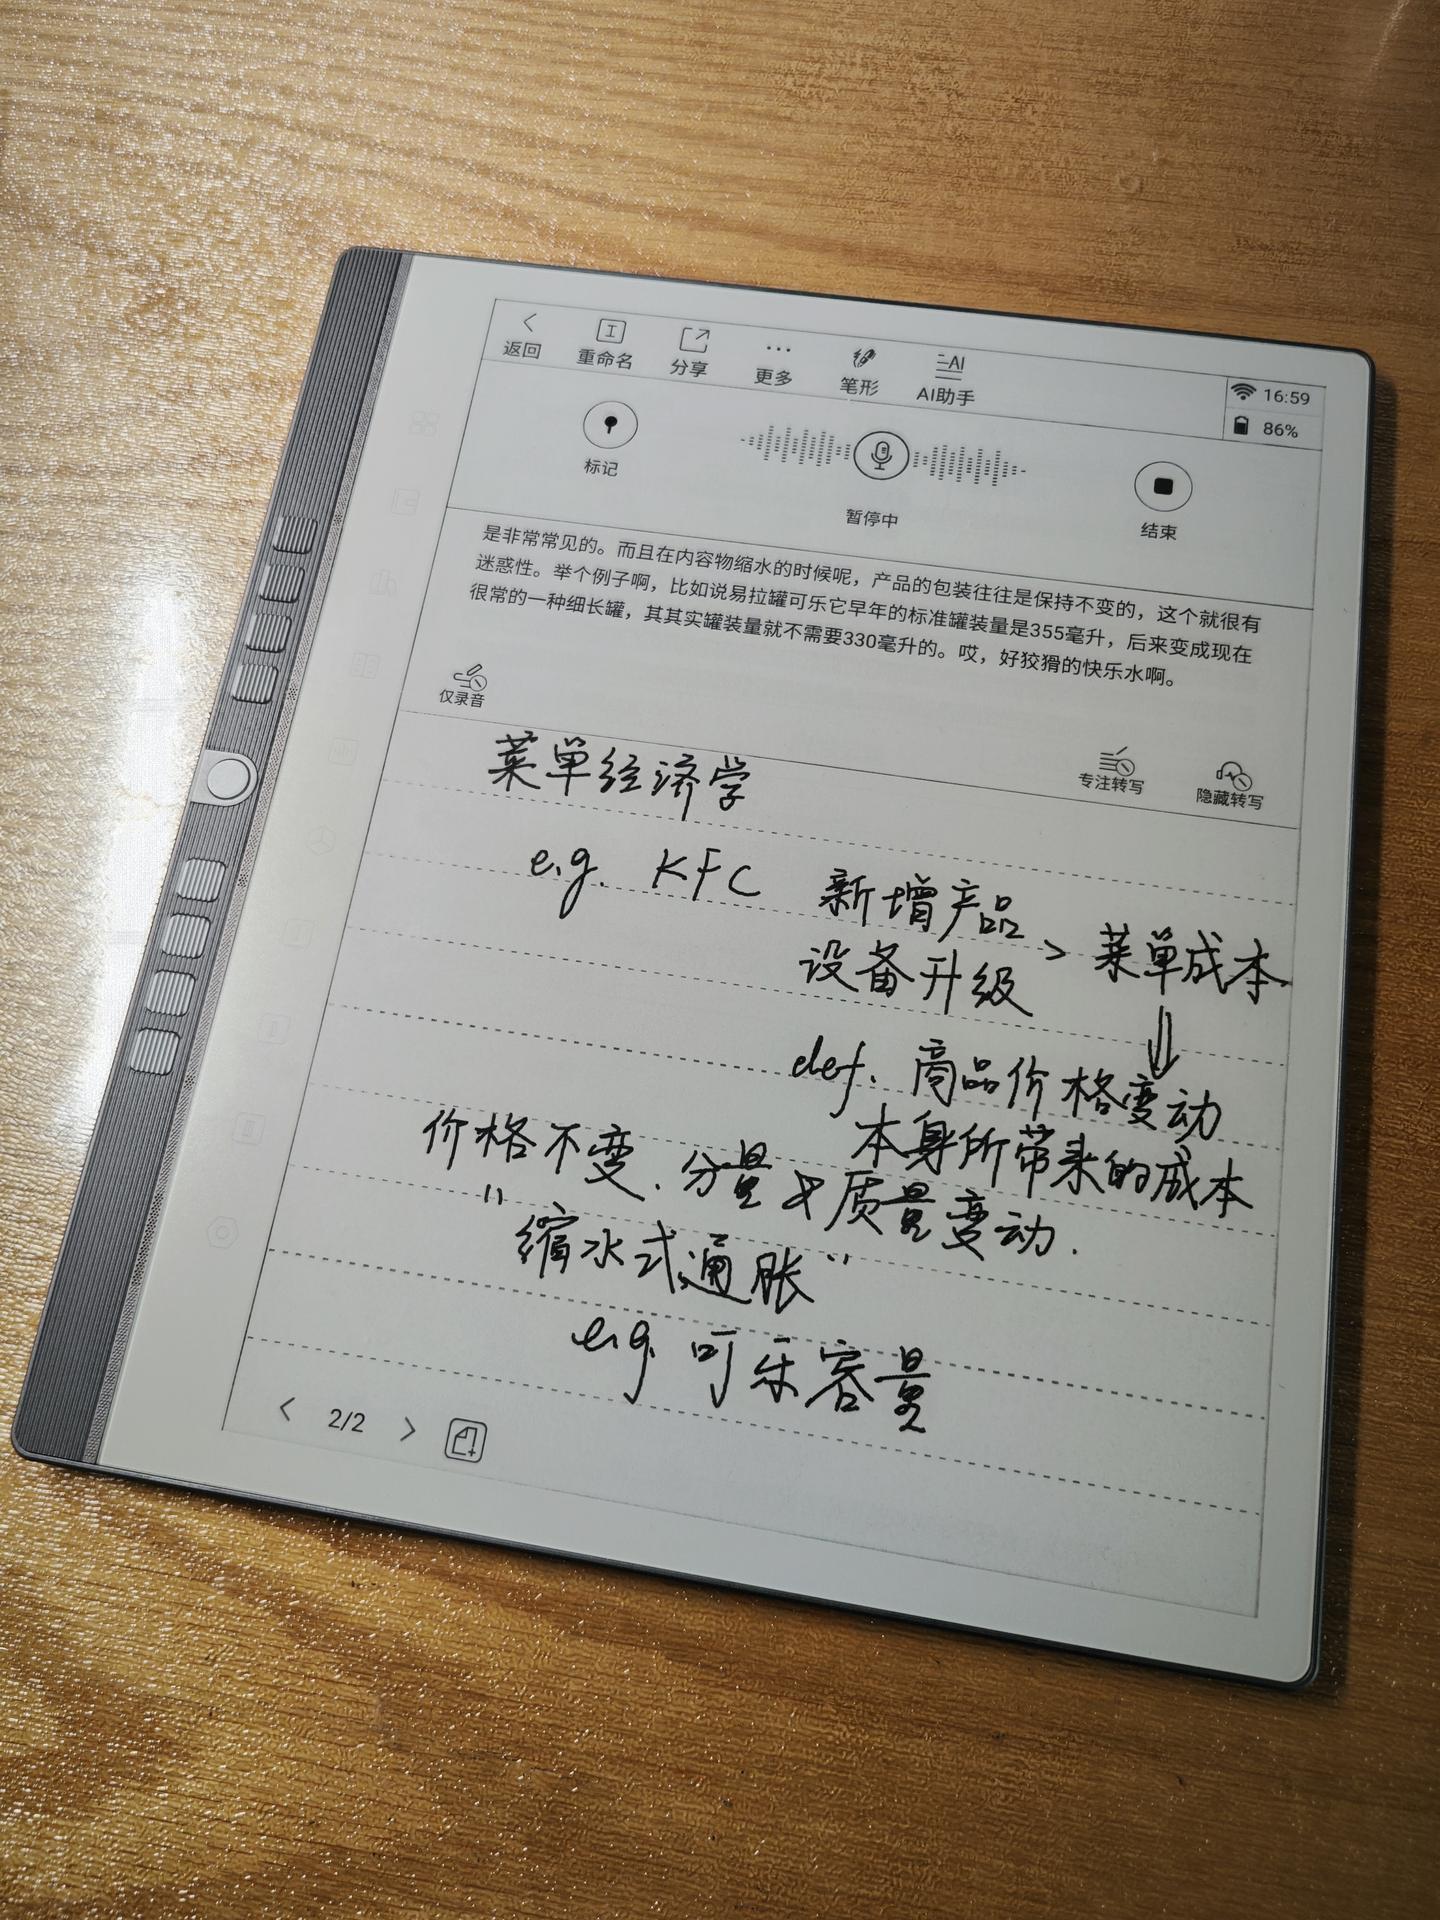 返回 重命名 分享 更多 笔形 AI助手
16:59
86%
标记
暂停中
结束
是非常常见的。而且在内容物缩水的时候呢，产品的包装往往是保持不变的，这个就很有
迷惑性。举个例子啊，比如说易拉罐可乐它早年的标准罐装量是355毫升，后来变成现在
很常的一种细长罐，其其实罐装量就不需要330毫升的。哎，好狡猾的快乐水啊。
仅录音
专注转写
隐藏转写
菜单经济学
e.g. KFC 新增产品
设备升级 > 菜单成本
⇓
def. 商品价格变动
本身所带来的成本
价格不变、分量&质量变动.
"缩水式通胀"
e.g. 可乐容量
< 2/2 >